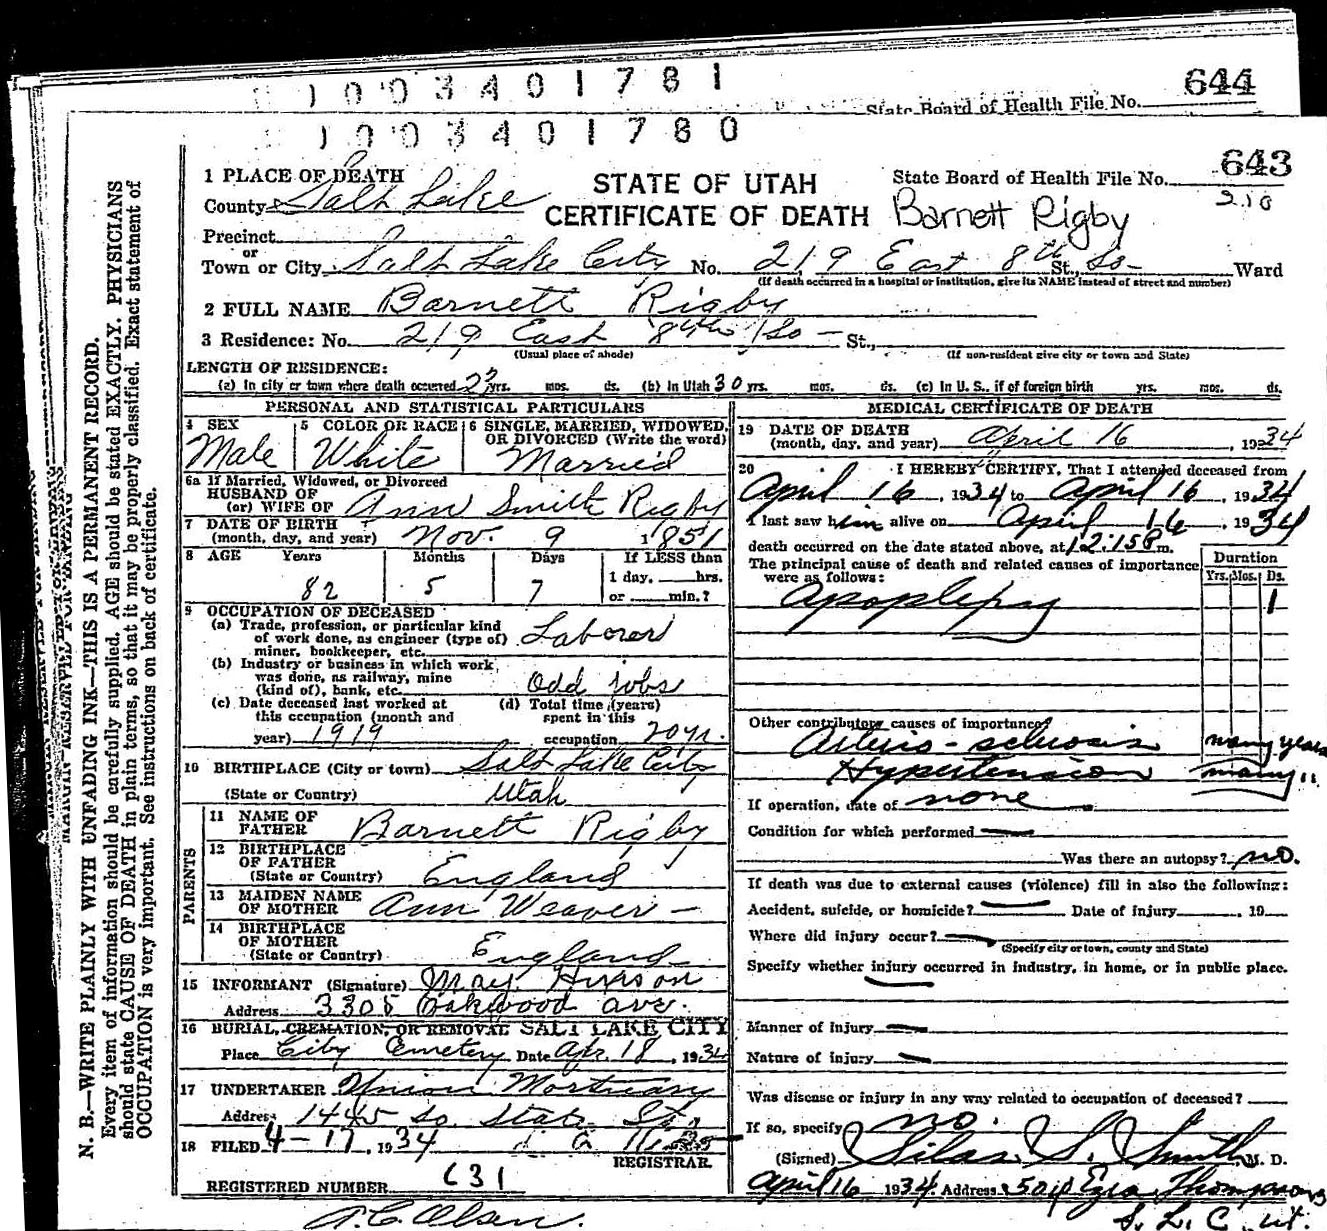 1003401781
644
State Board of Health File No.
1003401780
643
1 PLACE OF DEATH
STATE OF UTAH
State Board of Health File No.
210
County Salt Lake
CERTIFICATE OF DEATH
Barnett Rigby
Precinct
or
Town or City Salt Lake City No. 219 East 8th St., So- Ward
(If death occurred in a hospital or institution, give its NAME instead of street and number)
2 FULL NAME Barnett Rigby
3 Residence: No. 219 East 8th So- St.,
(Usual place of abode) (If non-resident give city or town and State)
LENGTH OF RESIDENCE:
(a) In city or town where death occurred yrs. mos. ds. (b) In Utah 30 yrs. mos. ds. (c) In U. S., if of foreign birth yrs. mos. ds.
PERSONAL AND STATISTICAL PARTICULARS
4 SEX 5 COLOR OR RACE 6 SINGLE, MARRIED, WIDOWED, OR DIVORCED (Write the word)
Male White Married
6a If Married, Widowed, or Divorced
HUSBAND OF
(or) WIFE OF Ann Smith Rigby
7 DATE OF BIRTH
(month, day, and year) Nov. 9 1851
8 AGE Years Months Days If LESS than
1 day, hrs.
82 5 7 or min.?
9 OCCUPATION OF DECEASED
(a) Trade, profession, or particular kind
of work done, as engineer (type of) Laborer
miner, bookkeeper, etc.
(b) Industry or business in which work
was done, as railway, mine
(kind of), bank, etc. Odd jobs
(c) Date deceased last worked at (d) Total time (years)
this occupation (month and spent in this
year) 1919 occupation 20 yr.
10 BIRTHPLACE (City or town) Salt Lake City
(State or Country) Utah
PARENTS
11 NAME OF
FATHER Barnett Rigby
12 BIRTHPLACE
OF FATHER
(State or Country) England
13 MAIDEN NAME
OF MOTHER Ann Weaver -
14 BIRTHPLACE
OF MOTHER
(State or Country) England
15 INFORMANT (Signature) May
Address 3305 Oakwood ave.
16 BURIAL, CREMATION, OR REMOVAL SALT LAKE CITY
Place City Cemetery Date Apr. 18, 1934
17 UNDERTAKER Union Mortuary
Address 1445 So. State St.
18 FILED 4-17, 1934
REGISTRAR
REGISTERED NUMBER 631
A.C. Olsen.
MEDICAL CERTIFICATE OF DEATH
19 DATE OF DEATH
(month, day, and year) April 16, 1934
20 I HEREBY CERTIFY, That I attended deceased from
April 16, 1934 to April 16, 1934
I last saw him alive on April 16, 1934
death occurred on the date stated above, at 12:15 P m.
The principal cause of death and related causes of importance
were as follows:
Duration
Yrs. Mos. Ds.
Apoplexy 1
Other contributory causes of importance
Arterio-sclerosis many years
Hypertension many "
If operation, date of none
Condition for which performed
Was there an autopsy? no.
If death was due to external causes (violence) fill in also the following:
Accident, suicide, or homicide? Date of injury , 19
Where did injury occur?
(Specify city or town, county and State)
Specify whether injury occurred in industry, in home, or in public place.
Manner of Injury
Nature of injury
Was disease or injury in any way related to occupation of deceased?
If so, specify no.
(Signed) Silas S. Smith, M. D.
April 16 1934. Address 504 Ezra Thompson
S. L. C. ut.
N. B.—WRITE PLAINLY WITH UNFADING INK—THIS IS A PERMANENT RECORD.
Every item of information should be carefully supplied. AGE should be stated EXACTLY. PHYSICIANS
should state CAUSE OF DEATH in plain terms, so that it may be properly classified. Exact statement of
OCCUPATION is very important. See instructions on back of certificate.
MARGIN RESERVED FOR BINDING